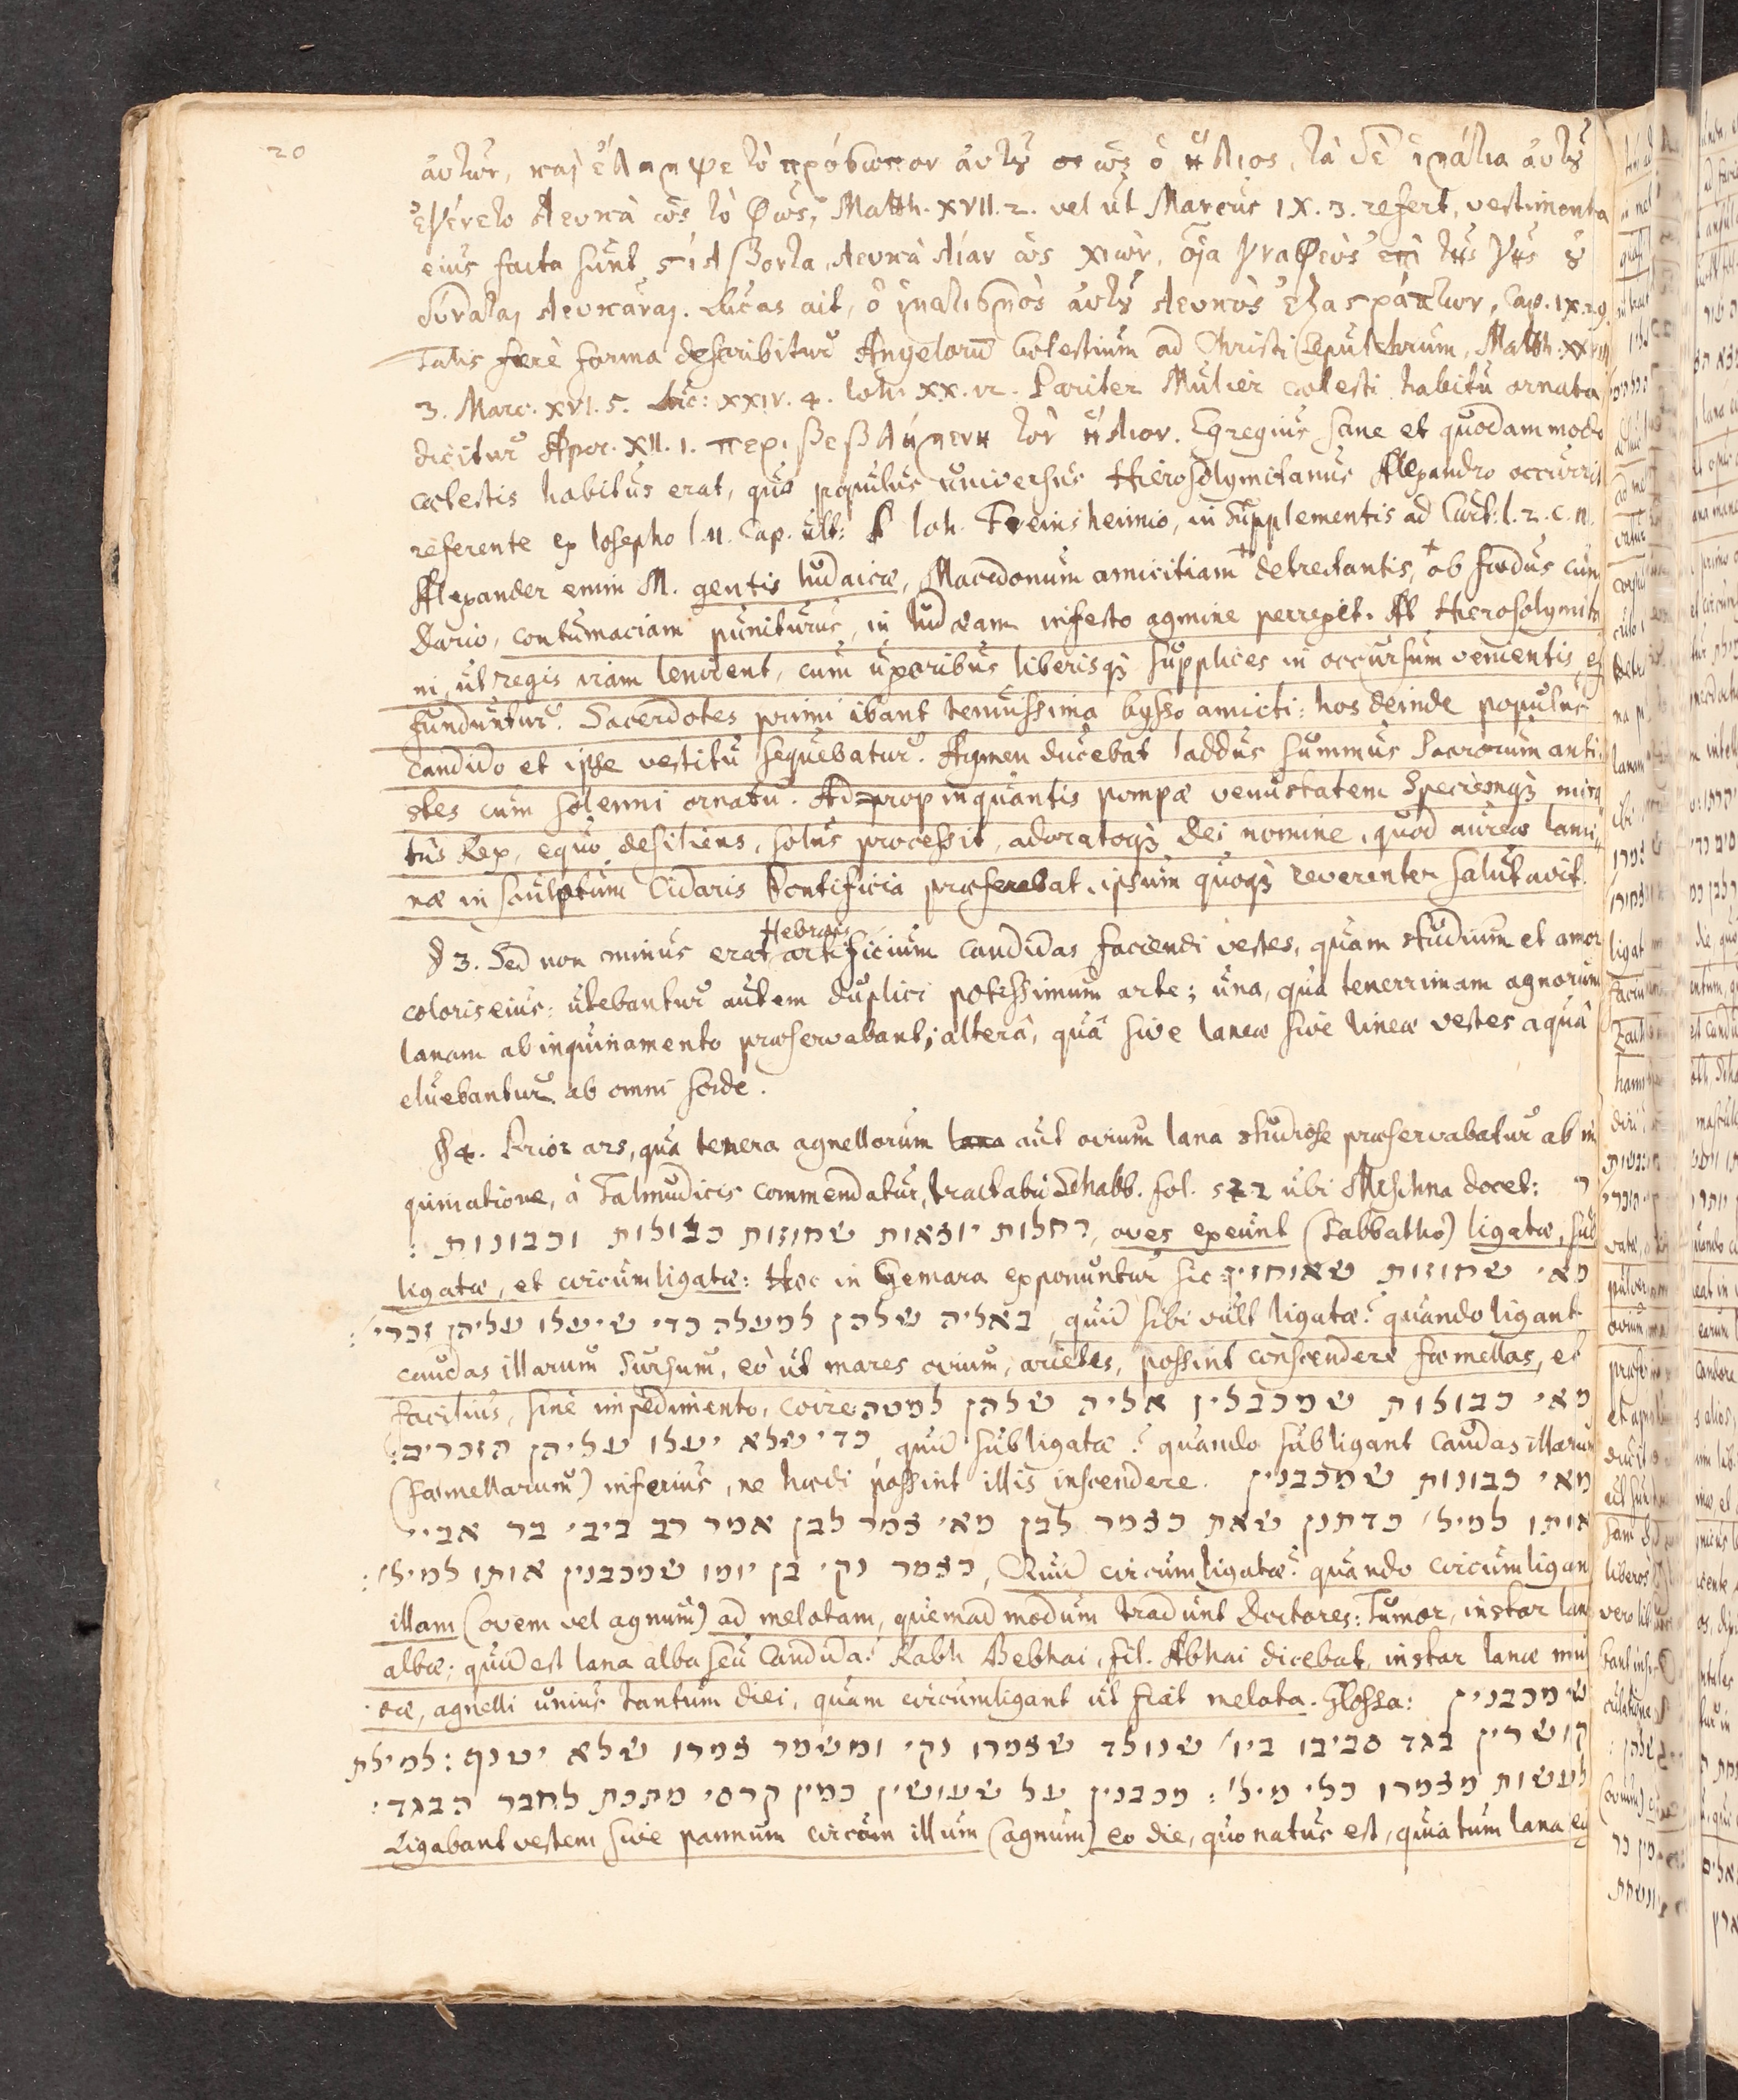 20
αὐτῶν, καὶ ἔλαμψε τὸ πρόσωπον αὐτοῦ ὡς ὁ ἥλιος, τὰ δὲ ἱμάτια αὐτοῦ
ἐγένετο λευκὰ ὡς τὸ φῶς, Matth. XVII. 2. vel ut Marcus IX. 3. refert, vestimenta
eius facta sunt στίλβοντα, λευκὰ λίαν ὡς χιὼν, οἷα γναφεὺς ἐπὶ τῆς γῆς οὐ
δύναται λευκᾶναι. Lucas ait, ὁ ἱματισμὸς αὐτοῦ λευκὸς ἐξαστράπτων, Cap. IX. 29.
Talis ferè forma describitur Angelorum Coelestium ad Christi Sepulchrum, Matth. XXVIII
3. Marc. XVI. 5. Luc: XXIV. 4. Ioh. XX. 12. Pariter Mulier coelesti habitu ornata
dicitur Apoc. XII. 1. περιβεβλήμενη τὸν ἥλιον. Egregius sane et quodammodo
coelestis habitus erat, quo populus universus Hierosolymitanus Alexandro occurrit
referente ex Iosepho l. 11. Cap. ult: Ioh. Freinshemio, in Supplementis ad Curt: l. 2. c. 11.
Alexander enim M. gentis Iudaicæ, Macedonum amicitiam + detrectantis, + ob foedus cum
Dario, contumaciam puniturus, in Iudæam infesto agmine perrexit. At Hierosolymita
ni, ut regis iram lenirent, cum uxoribus liberisq; supplices in occursum venientis ef
funduntur. Sacerdotes primi ibant tenuissima bysso amicti: hos deinde populus
candido et ipse vestitu sequebatur. Agmen ducebat Iaddus summus Sacrorum anti
stes cum solenni ornatu. Adpropinquantis pompæ venustatem Speciemq; mira
tus Rex, equo desiliens, solus processit, adoratoq; Dei nomine, quod aureæ lami
næ insculptum Cidaris Pontificia præferebat, ipsum quoq; reverenter salutavit.
§ 3. Sed non minus erat Hebræis artificium candidas faciendi vestes, quam studium et amor
coloris eius: utebantur autem duplici potissimum arte; una, qua tenerrimam agnorum
lanam ab inquinamento præservabant; alterâ, quâ sive laneæ sive lineæ vestes aquâ
eluebantur ab omni sorde.
§ 4. Prior ars, qua tenera agnellorum lana aut ovium lana studiose præservabatur ab in
quinatione, à Talmudicis commendatur, tractatu Schabb. fol. 522 ubi Mischna docet: ר
רחלות יוצאות שחוזות כבולות וכבונות:, oves exeunt (Sabbatho) ligatæ, sub
ligatæ, et circumligatæ: Hoc in Gemara exponuntur sic: מאי שחוזות שאוחזין
באליה שלהן למעלה כדי שיעלו עליהן זכרי׳:, quid sibi vult ligatæ? quando ligant
caudas illarum sursum, eò ut mares ovium, arietes, possint conscendere foemellas, et
facilius, sine impedimento, coire מאי כבולות שמכבלין אליה שלהן למטה
כדי שלא יעלו עליהן הזכרים: quid subligatæ? quando subligant caudas illarum
(foemellarum) inferius, ne hoedi possint illis inscendere. מאי כבונות שמכבנין
אותו למיל׳ כדתנן שאת כצמר לבן מאי צמר לבן אמר רב ביבי בר אביי
כצמר נקי בן יומו שמכבנין אותו למיל׳:, Quid circumligatæ? quando circumligan
illam (ovem vel agnum) ad melotam, quemadmodum tradunt Doctores: Tumor, instar lan
albæ; quid est lana alba seu Candida? Rabh Bebhai, fil. Abhai dicebat, instar lanæ mun
dæ, agnelli unius tantum diei, quam circumligant ut fiat melota. Glossa: שמכבנין
קושרין בגד סביבו ביו׳ שנולד שצמרו נקי ומשמר צמרו שלא יטנף: למילת
לעשות מצמרו כלי מיל׳: מכבנין על שעושין כמין קרסי מתכת לחבר הבגד:
Ligabant vestem sive pannum circum illum (agnum) eo die, quo natus est, quia tum lana ei